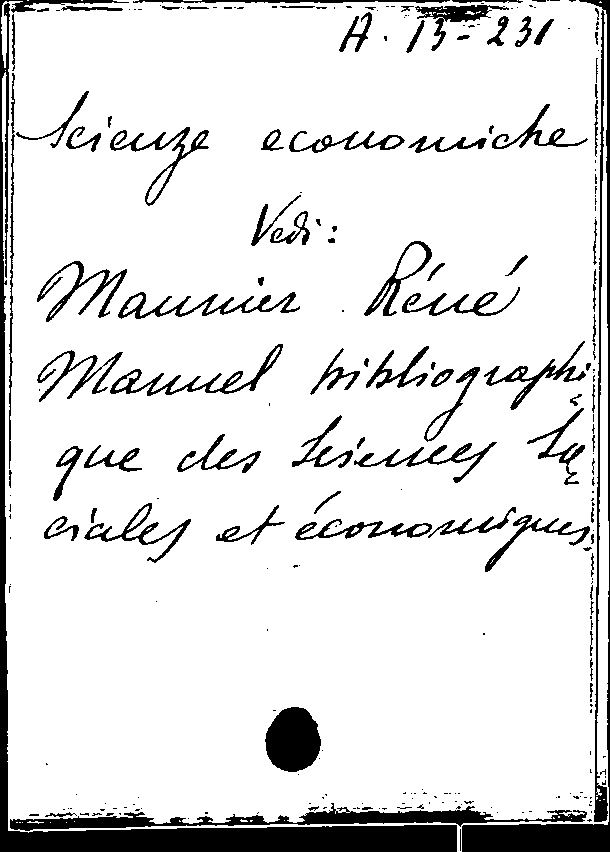 A. 13-231
Scienze economiche
Vedi:
Maunier Réné
Manuel bibliographi=
que des Sciences So=
ciales et économiques.